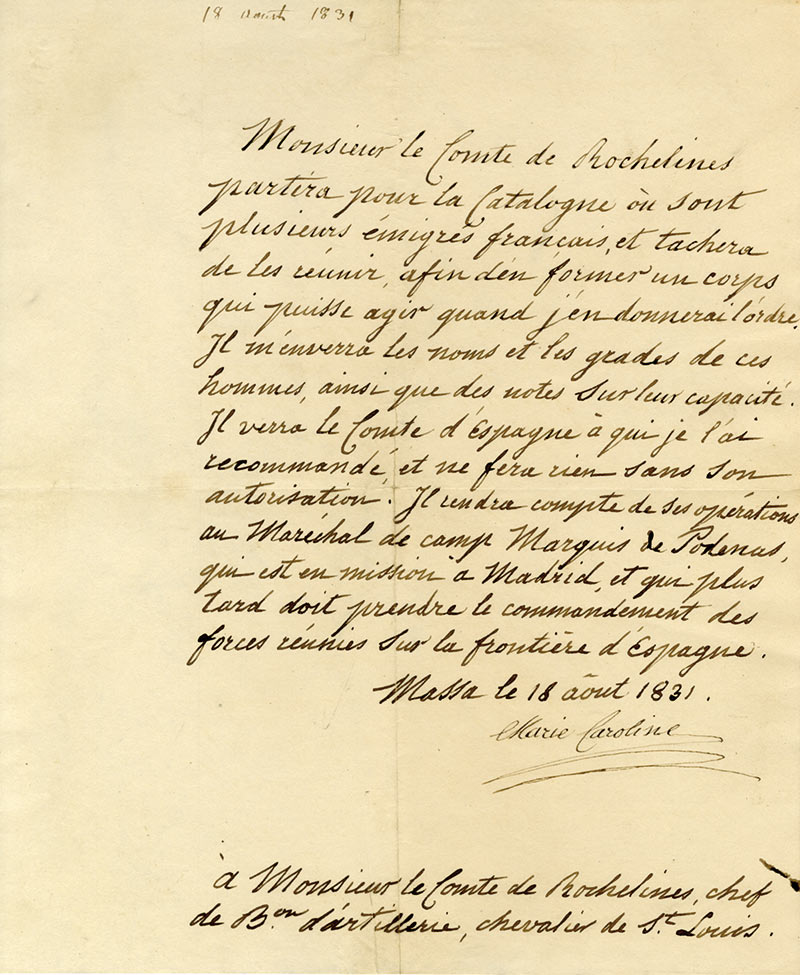 18 Aout 1831
Monsieur le Comte de Rochelines
partéra pour la Catalogne où sont
plusieurs émigrés français, et tachera
de les réunir, afin d'én former un corps
qui puisse agir quand j'én donnerai l'órdre.
Il m'énverra les noms et les grades de ces
hommes, ainsi que des notes sur leur capacité.
Il verra le Comte d'Espagne à qui je l'ai
recommandé, et ne fera rien sans son
autorisation. Il rendra compte de ses opérations
au Marechal de camp Marquis de Podenas,
qui est en mission à Madrid, et qui plus
tard doit prendre le commandement des
forces réunies sur la frontière d'Espagne.
Massa le 18 août 1831.
Marie Caroline
à Monsieur le Comte de Rochelines, chef
de B.on d'artillerie, chevalier de S.t Louis.